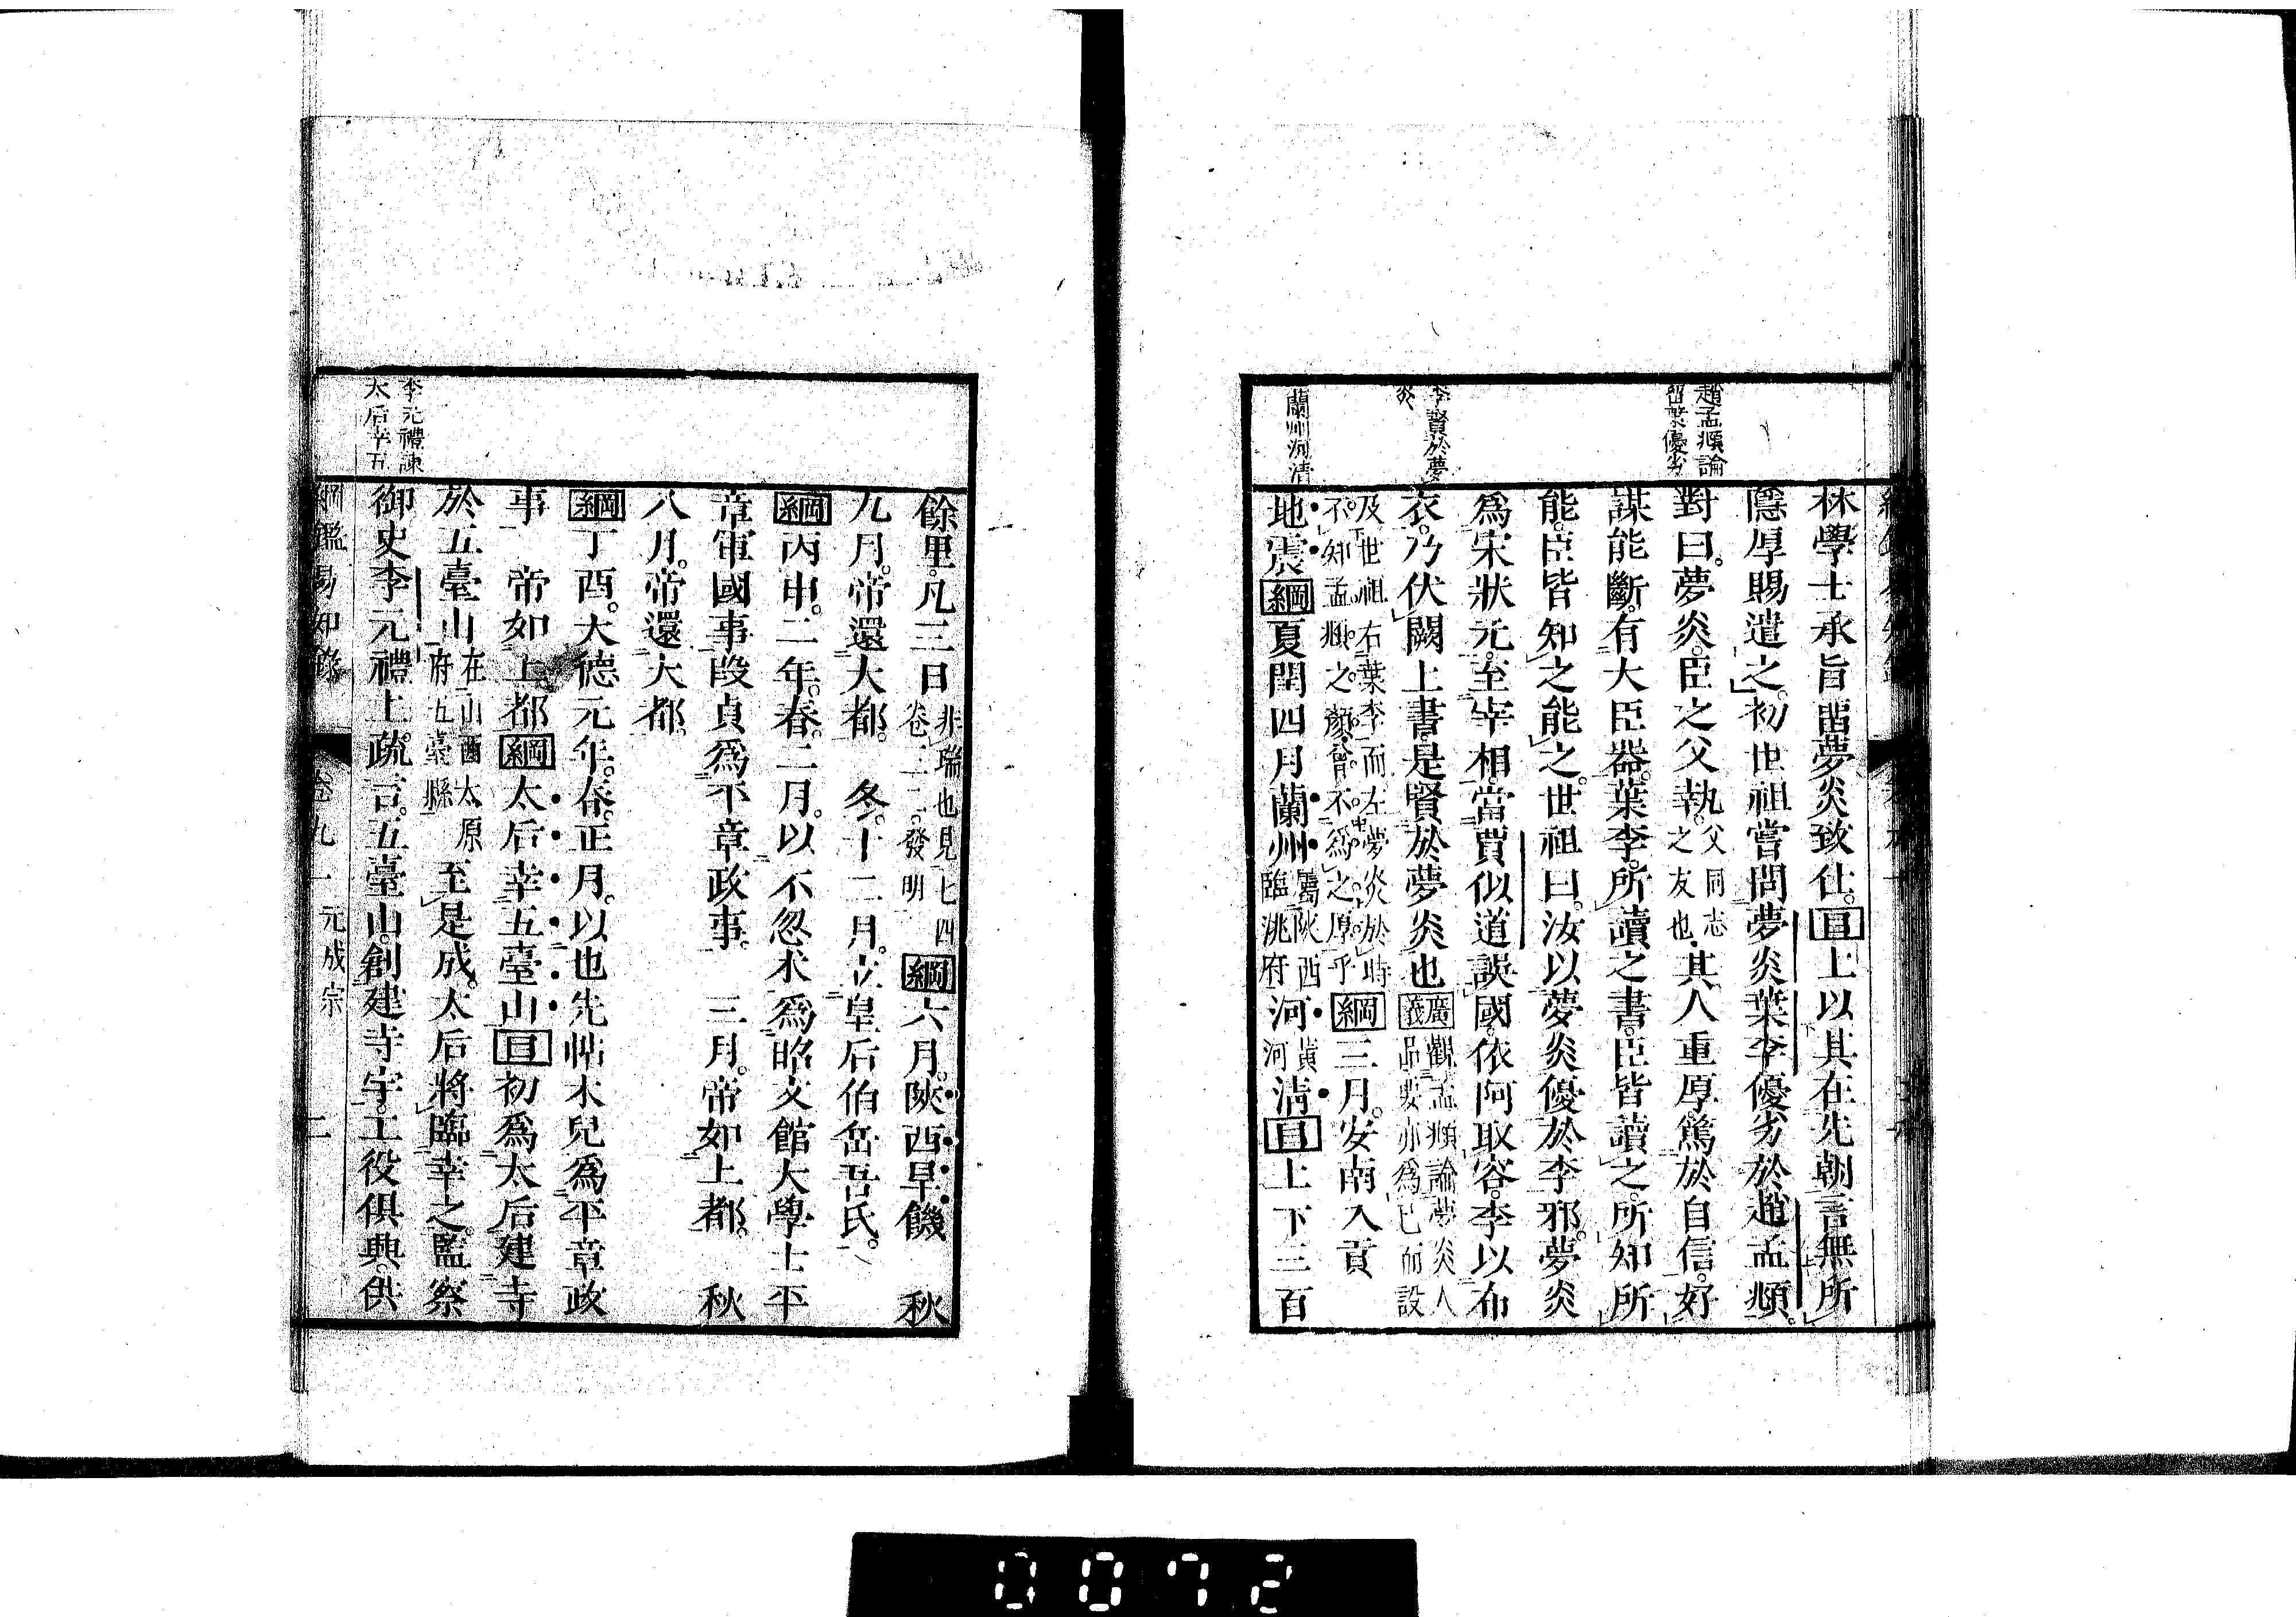 趙孟頫論
留葉優劣
李賢於夢
炎
蘭州河清
林學士承旨畱夢炎致仕。目上以其在先朝言無所
隱厚賜遣之。初世祖嘗問夢炎葉李優劣於趙孟頫。
對曰。夢炎。臣之父執。父同志之友也。其人重厚。篤於自信。好
謀能斷。有大臣器。葉李。所讀之書。臣皆讀之。所知所
能。臣皆知之能之。世祖曰。汝以夢炎優於李邪。夢炎
爲宋狀元。至宰相。當賈似道誤國。依阿取容。李以布
衣。乃伏闕上書。是賢於夢炎也廣義觀孟頫論夢炎人品要亦爲已而設
及世祖右葉李而左夢炎於時不知孟頫之顏曾不爲之厚乎綱三月。安南入貢
地震綱夏閏四月蘭州屬陝西臨洮府河黃河清目上下三百
餘里。凡三日非瑞也見七四卷二二發明綱六月。陝西旱饑　秋
九月。帝還大都。　冬。十二月。立皇后伯岳吾氏。
綱丙申。二年。春。二月。以不忽朮爲昭文館大學士平
章軍國事段貞爲平章政事。　三月。帝如上都。　秋
八月。帝還大都。
綱丁酉。大德元年。春。正月。以也先帖木兒爲平章政
事　帝如上都綱太后幸五臺山目初爲太后建寺
於五臺山在山西太原府五臺縣至是成。太后將臨幸之。監察
御史李元禮上疏言。五臺山。創建寺宇。工役俱興。供
李元禮諫
太后幸五
綱鑑易知錄　卷九一　元成宗　二
0072